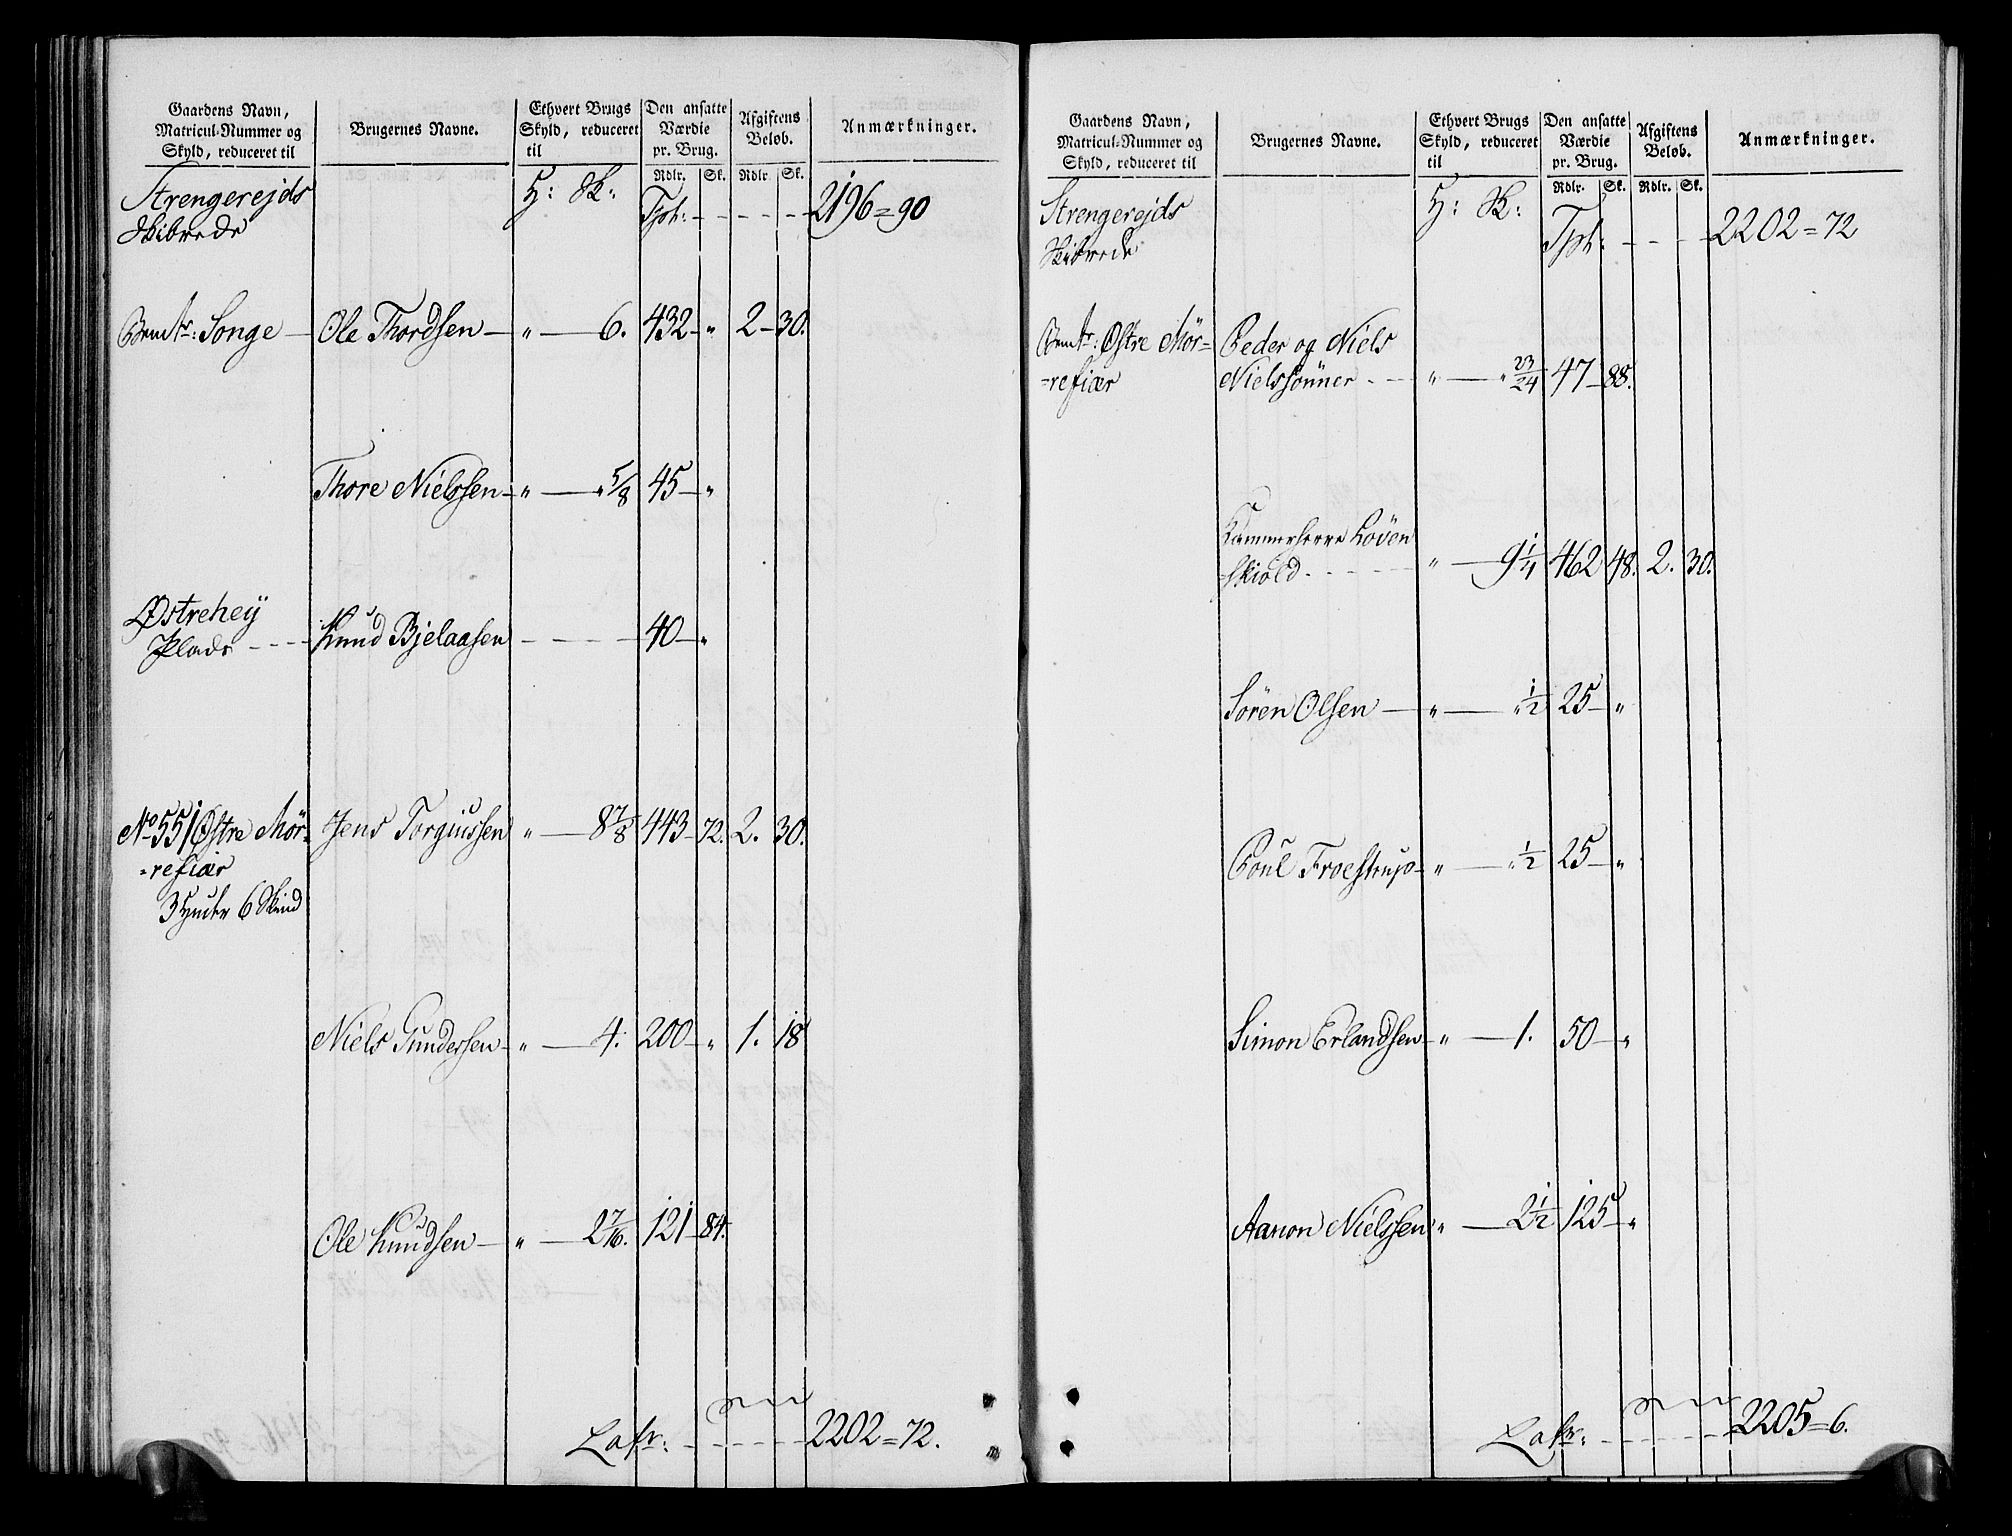 Gaardens Navn,
Matricul-Nummer og
Skyld, reduceret til
Brugernes Navne.
Ethvert Brugs
Skyld, reduceret
til
Den ansatte
Værdie
pr. Brug.
Afgiftens
Beløb.
Anmærkninger.
Rdlr. Sk. Rdlr. Sk.
Strengerejds H: Sk: Tpt: 2196=90
Skibrede
Songe Ole Thordsen „ 6. 432 „ 2 30.
Thore Nielssen „ „ 5/8 45 „
Østrehey
Plads Knud Bjelaasen 40 „
No 55 Østre Mör= Jens Torgiussen „ 8 7/8 443 72. 2. 30.
=refiær
3 Huder 6 Skind
Niels Gundersen „ 4. 200 „ 1. 18
Ole Knudsen „ 2 7/16. 121 84.
Lafr: 2202=72.
Gaardens Navn,
Matricul-Nummer og
Skyld, reduceret til
Brugernes Navne.
Ethvert Brugs
Skyld, reduceret
til
Den ansatte
Værdie
pr. Brug.
Afgiftens
Beløb.
Anmærkninger.
Rdlr. Sk. Rdlr. Sk.
Strengerejds H: Sk: Tpt: 2202=72
Skibrede
Østre Mör= Peder og Niels
=refiær Nielssönner „ „ 23/24 47 88.
Kammerherre Löven
=skiold „ 9 1/4 462 48. 2. 30.
Sören Olsen „ „ 1/2 25 „
Poul Froestrup „ „ 1/2 25 „
Simon Erlandsen „ 1. 50 „
Aanon Nielssen „ 2 1/2 125 „
Lafr: 2205=6.